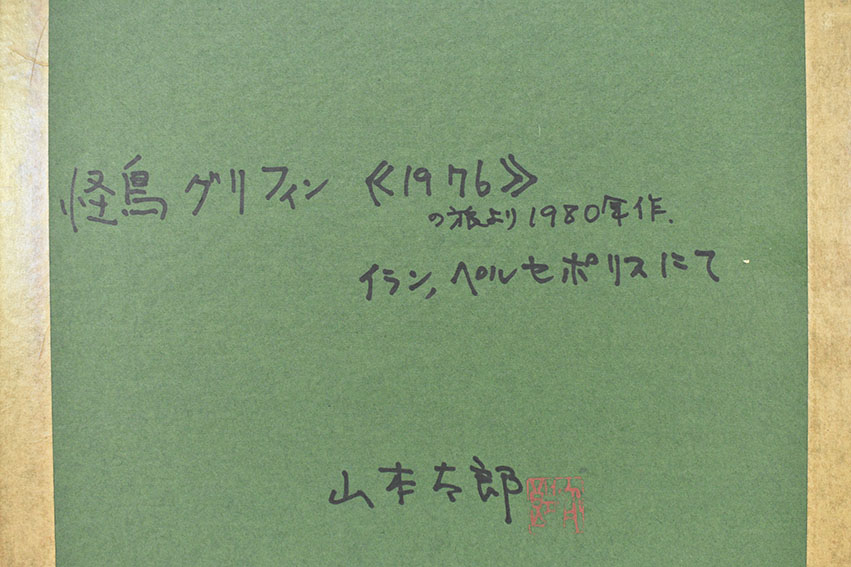 怪鳥グリフィン 《1976》
の旅より1980年作.
イラン, ペルセポリスにて
山本太郎